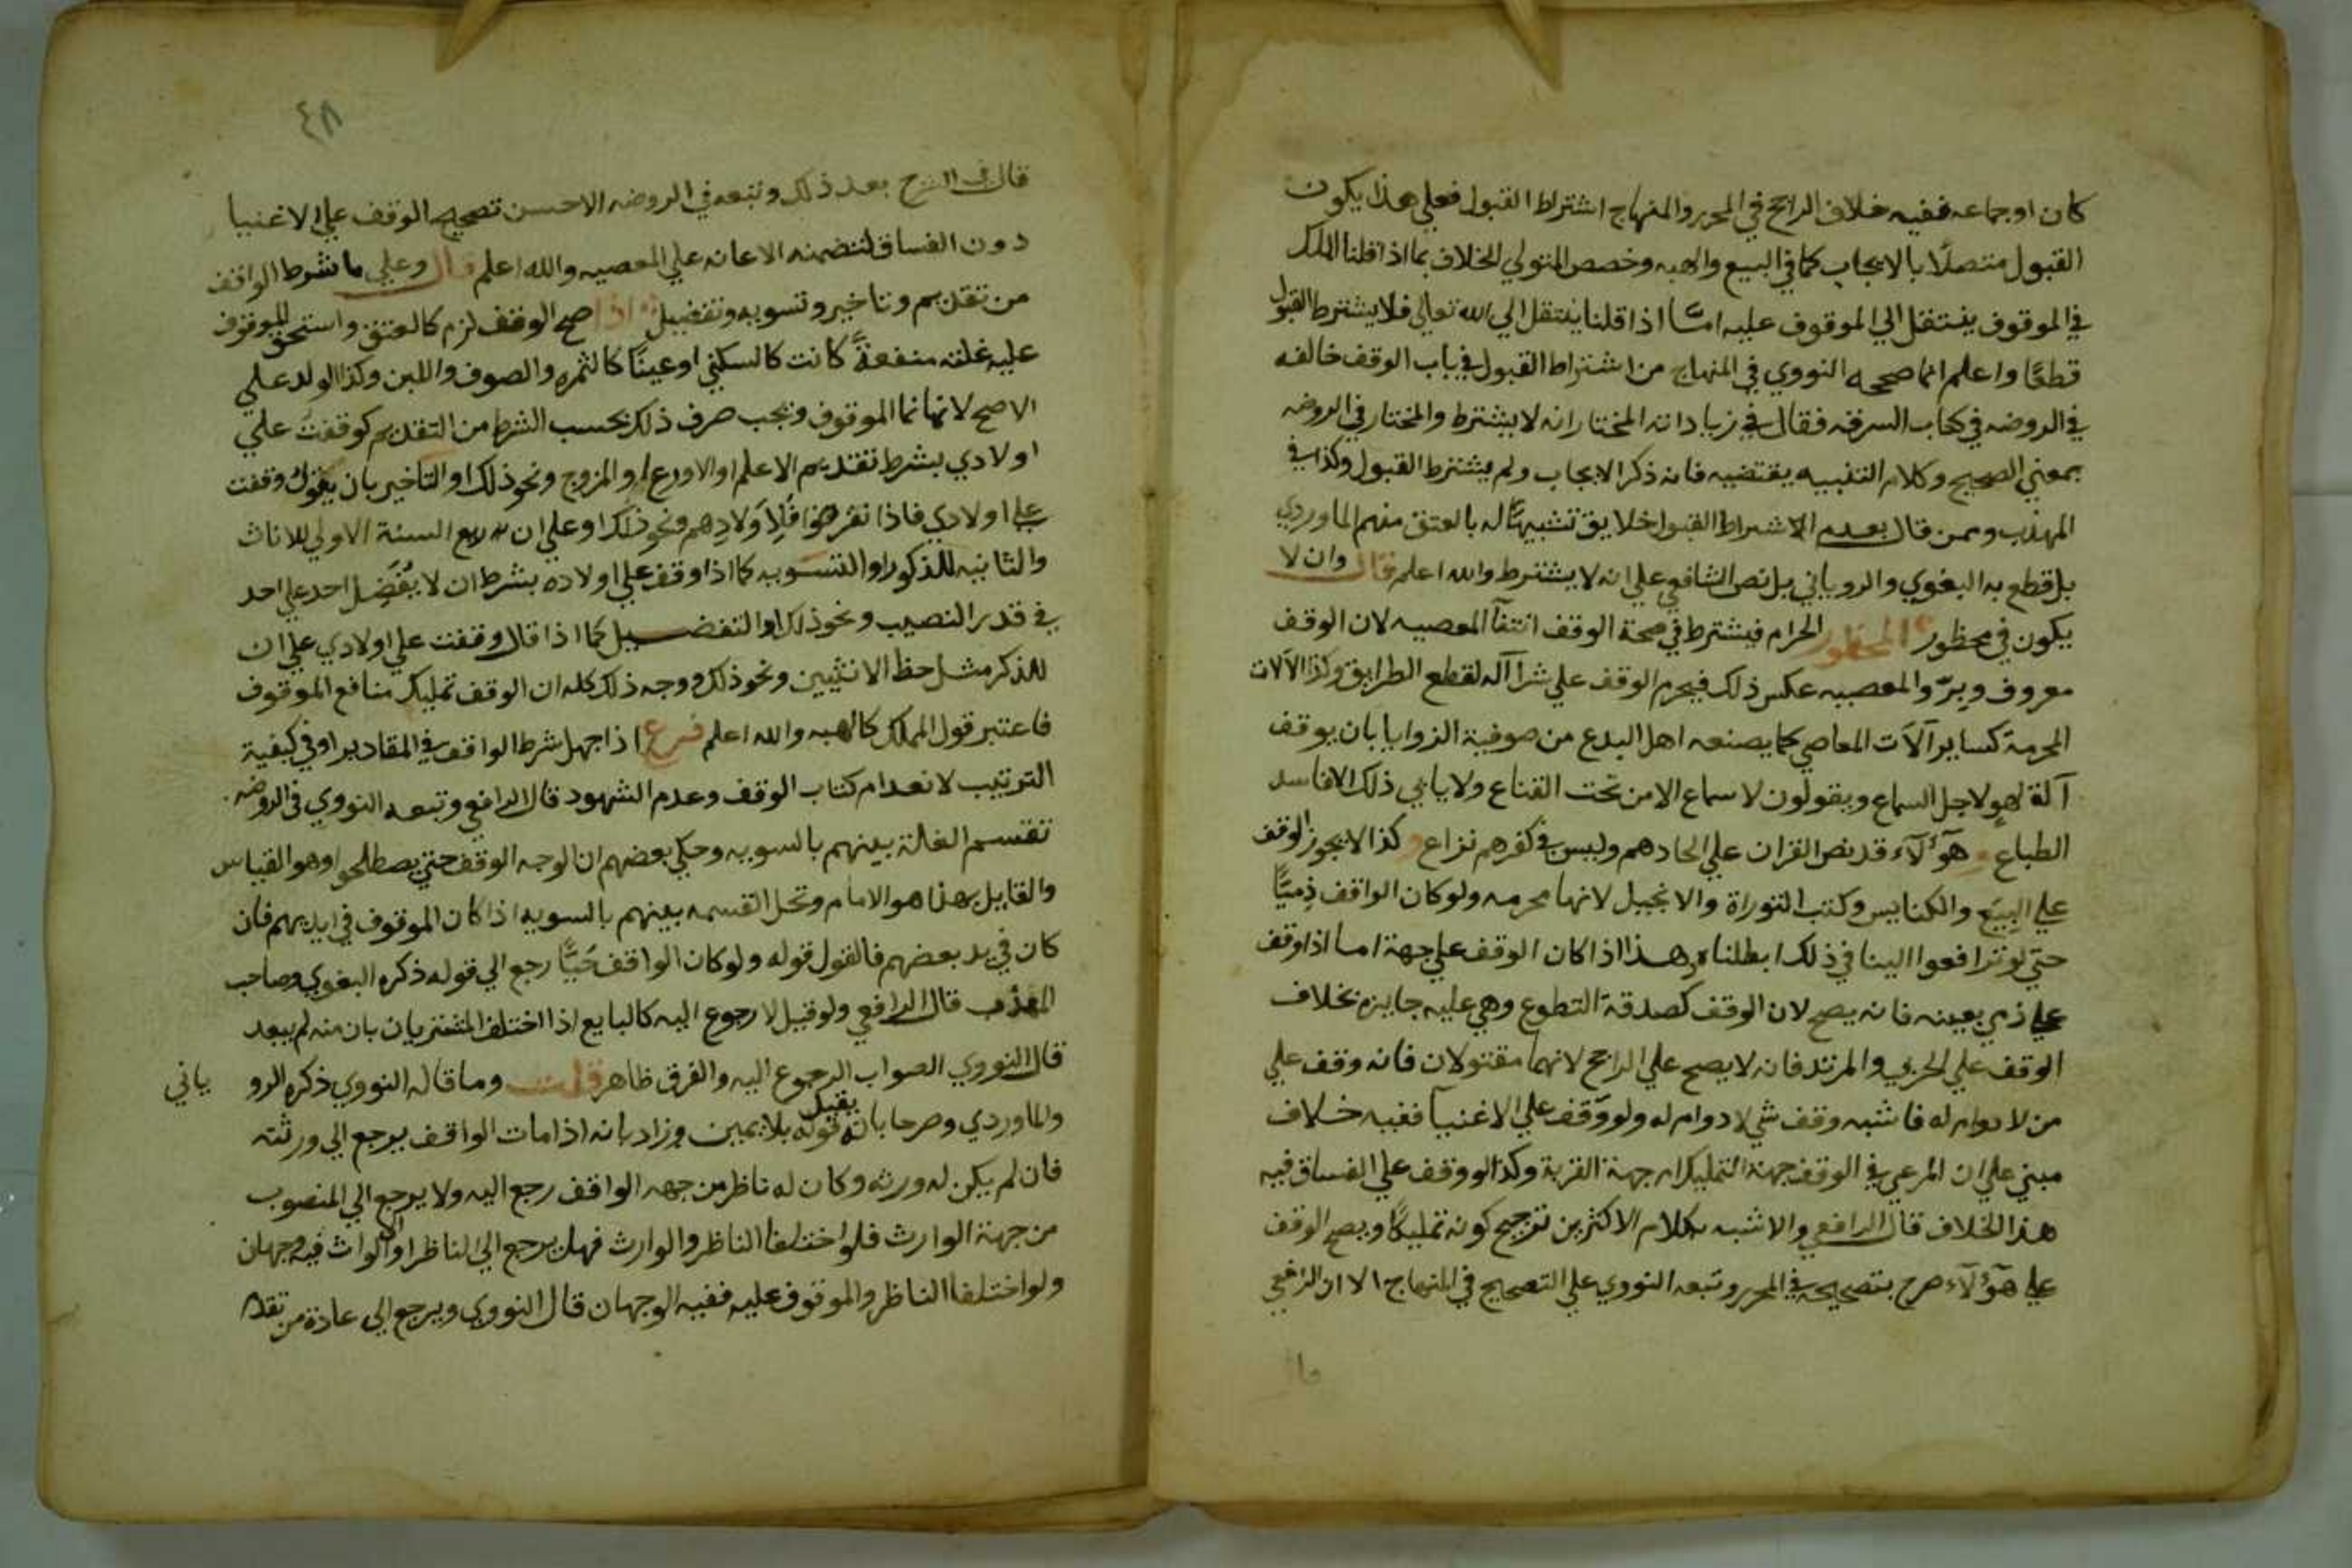 كان او جماعه ففيه خلاف الراجح في المحرر والمنهاج اشتراط القبول فعلي هذا يكون
القبول متصلًا بالايجاب كما في البيع والهبه وخصص المتولي الخلاف بما اذا قلنا الملك
في الموقوف ينتقل الي الموقوف عليه امّا اذا قلنا ينتقل الي الله تعالي فلا يشترط القبول
قطعًا واعلم انما صححه النووي في المنهاج من اشتراط القبول في باب الوقف خالفه
في الروضه في كتاب السرقه فقال في زياداته المختار انه لا يشترط والمختار في الروضه
بمعني الصحيح وكلام التنبيه يقتضيه فانه ذكر الايجاب ولم يشترط القبول وكذا في
المهذب وممن قال بعدم الاشتراط القبول خلايق تشبيهًا له بالعتق منهم الماوردي
بل قطع به البغوي والروياني بل نص الشافعي علي انه لا يشترط والله اعلم قال وان لا
يكون في محظور المحظور الحرام فيشترط في صحة الوقف انتفآ المعصيه لان الوقف
معروف وبرّ والمعصيه عكس ذلك فيحرم الوقف علي شرآ آله لقطع الطرايق وكذا الآلات
المحرمة كساير آلآت المعاصي كما يصنعه اهل البدع من صوفية الزوايا بان يوقف
آلة لهو لاجل السماع ويقولون لا سماع الا من تحت القناع ولا يابي ذلك الا فاسد
الطباع هؤلآء قد نص القران علي الحادهم وليس في كفرهم نزاع وكذا لا يجوز الوقف
علي البِيَع والكنايس وكتب التوراة والانجيل لانها محرمه ولو كان الواقف ذِميًّا
حتي لو ترافعوا الينا في ذلك ابطلناه وهذا اذا كان الوقف علي جهة اما اذا وقف
علي ذمي بعينه فانه يصح لان الوقف كصدقة التطوع وهي عليه جايزه بخلاف
الوقف علي الحربي والمرتد فانه لا يصح علي الراجح لانهما مقتولان فانه وقف علي
من لا دوام له فاشبه وقف شي لا دوام له ولو وَقف علي الاغنيآ ففيه خلاف
مبني علي ان المرعي في الوقف جهة التمليك ام جهة القربة وكذا لو وقف علي الفساق فيه
هذا الخلاف قال الرافعي والاشبه بكلام الاكثرين ترجيح كونه تمليكًا ويصح الوقف
علي هؤلآء صرح بتصحيحه في المحرر وتبعه النووي علي التصحيح في المنهاج الا ان الرافعي
٤٨
قال في الشرح بعد ذلك وتبعه في الروضه الاحسن تصحيح الوقف علي الاغنيا
دون الفساق لتضمنه الاعانه علي المعصيه والله اعلم قال وعلي ما شرط الواقف
من تقديم وتاخير وتسويه وتفضيل اذا صح الوقف لزم كالعتق واستحق الموقوف
عليه غلته منفعةً كانت كالسكني او عينًا كالثمره والصوف واللبن وكذا الولد علي
الاصح لانها نما الموقوف ويجب صرف ذلك بحسب الشرط من التقديم كوقفت علي
اولادي بشرط تقديم الاعلم او الاورع او المزوج ونحو ذلك او التاخير بان يقول وقفت
علي اولادي فاذا نقرضوا فلاولادهم ونحو ذلك او علي ان ريع السنة الاولي للاناث
والثانيه للذكور او التسويه كما اذا وقف علي اولاده بشرط ان لا يُفَضل احد علي احد
في قدر النصيب ونحو ذلك او التفضيل كما اذا قال وقفت علي اولادي علي ان
للذكر مثل حظ الانثيين ونحو ذلك ووجه ذلك كله ان الوقف تمليك منافع الموقوف
فاعتبر قول المملك كالهبه والله اعلم فرع اذا جهل شرط الواقف في المقادير او في كيفية
الترتيب لانعدام كتاب الوقف وعدم الشهود قال الرافعي وتبعه النووي في الروضه
تقسم الغلة بينهم بالسويه وحكي بعضهم ان الوجه الوقف حتي يصطلحوا وهو القياس
والقايل بهذا هو الامام ومحل القسمه بينهم بالسويه اذا كان الموقوف في ايديهم فان
كان في يد بعضهم فالقول قوله ولو كان الواقف حَيًّا رجع الي قوله ذكره البغوي وصاحب
المهذب قال الرافعي ولو قيل لا رجوع اليه كالبايع اذا اختلف المشتريان بان منه لم يبعد
قال النووي الصواب الرجوع اليه والفرق ظاهر قلت وما قاله النووي ذكره الرو ياني
والماوردي وصرحا بانه يقبل قوله بلا يمين وزاد بانه اذا مات الواقف يرجع الي ورثته
فان لم يكن له ورثه وكان له ناظر من جهه الواقف رجع اليه ولا يرجع الي المنصوب
من جهة الوارث فلو اختلفا الناظر والوارث فهل يرجع الي الناظر او الي الواث فيه وجهان
ولو اختلفا الناظر والموقوف عليه ففيه الوجهان قال النووي ويرجع الي عادة من تقدم